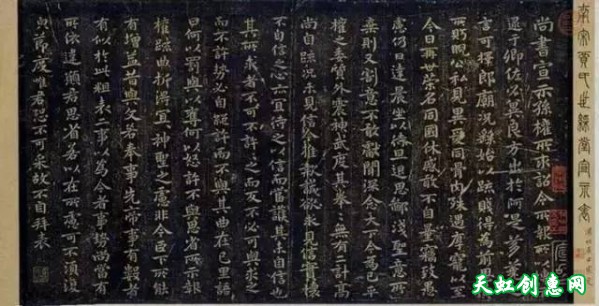 南宋賈氏世綵堂宣示表
尚書宣示孫權所求詔令所報所以博示
逮于卿佐必冀良方出於阿是芻蕘之
言可擇郎廟況繇始以疏賤得為前恩橫
所盱睨公私見異愛同骨肉殊遇厚寵以至
今日再世榮名同國休慼敢不自量竊致愚
慮仍日達晨坐以待旦退思鄙淺聖意所
棄則又割意不敢獻聞深念天下今為已平
權之委質外震神武度其拳拳無有二計高
尚自疏況未見信今推款誠欲求見信實懷
不自信之心亦宜待之以信而當護其未自信也
其所求者不可不許許之而反不必可與求之
而不許勢必自絕許而不與其曲在己里語
曰何以罰與以奪何以怒許不與思省所示報
權疏曲折得宜宜神聖之慮非今臣下所能
有增益昔與文若奉事先帝事有數者
有似於此粗表二事以為今者事勢尚當有
所依違願君思省若以在所慮可不須復
白節度唯君恐不可采故不自拜表
天虹创意网